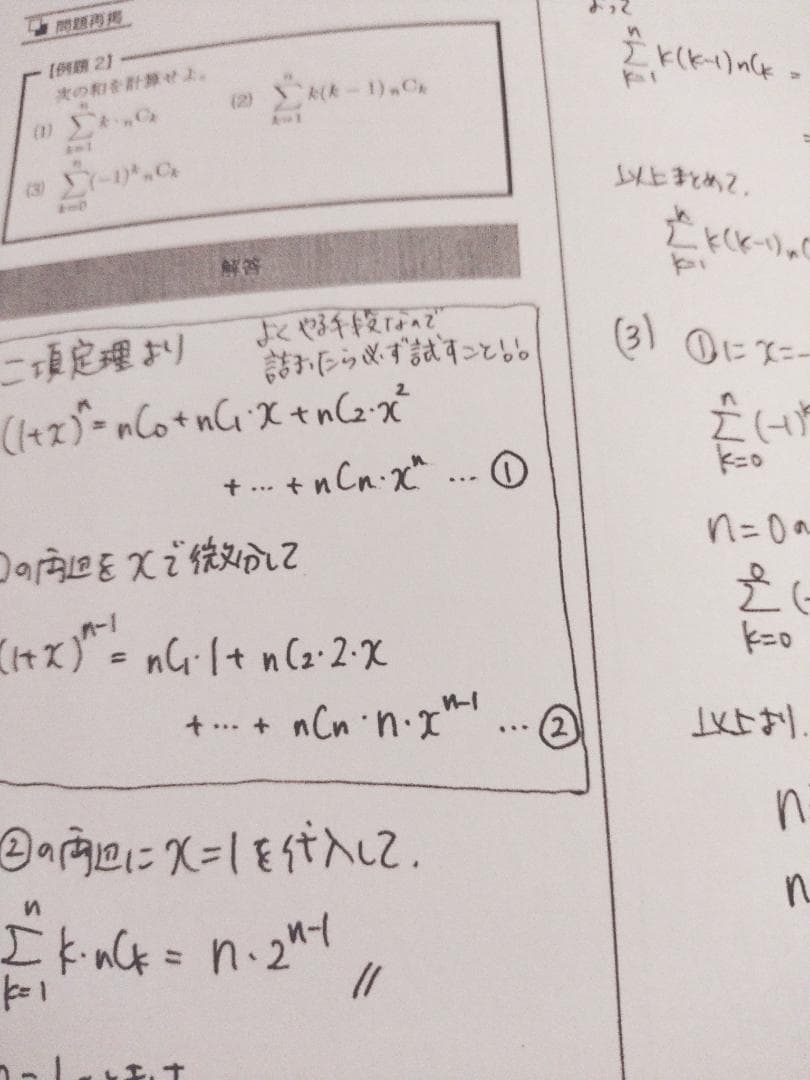 問題再掲
【例題 2】
次の和を計算せよ。
(1) \sum_{k=1}^{n} k・nCk (2) \sum_{k=1}^{n} k(k−1) nCk
(3) \sum_{k=0}^{n} (−1)^k nCk
解答
二項定理より
よくやる手段なので
詰まったら必ず試すこと!!
(1+x)^n = nC0 + nC1・x + nC2・x^2
+ … + nCn・x^n … ①
の両辺を x で微分して
(1+x)^{n-1} = nC1・1 + nC2・2・x
+ … + nCn・n・x^{n-1} … ②
②の両辺に x=1 を代入して,
\sum_{k=1}^{n} k・nCk = n・2^{n-1} //
よって
\sum_{k=1}^{n} k(k-1) nCk =
=
以上まとめて,
\sum_{k=1}^{n} k(k-1) n
(3) ①に x=-
\sum_{k=0}^{n} (-1)^k
n=0 の
\sum_{k=0}^{0} (-
以上より,
n
n